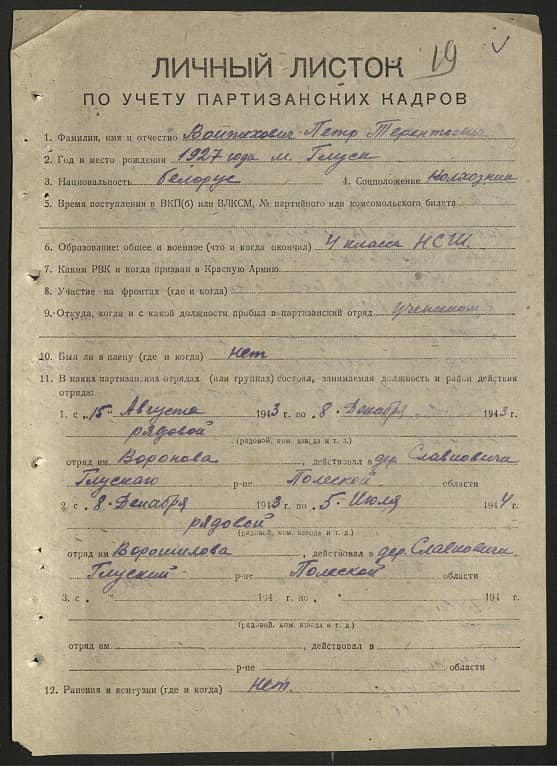 19
ЛИЧНЫЙ ЛИСТОК
ПО УЧЕТУ ПАРТИЗАНСКИХ КАДРОВ
1. Фамилия, имя и отчество Войтехович Петр Терентьевич
2. Год и место рождения 1927 года м. Глуск
3. Национальность белорус 4. Соцположение Колхозник
5. Время поступления в ВКП(б) или ВЛКСМ, № партийного или комсомольского билета
6. Образование: общее и военное (что и когда окончил) 4 класса НСШ.
7. Каким РВК и когда призван в Красную Армию
8. Участие на фронтах (где и когда)
9. Откуда, когда и с какой должности прибыл в партизанский отряд учеником
10. Был ли в плену (где и когда) нет
11. В каких партизанских отрядах (или группах) состоял, занимаемая должность и район действия
отряда:
1. с „15" Августа 1943 г. по „8" Декабря 1943 г.
рядовой
(рядовой, ком. взвода и т. д.)
отряд им Воронова, действовал в дер. Славковичи
Глускаго р-не Полеской области
2. с „8" Декабря 1943 г. по „5" Июля 1944 г.
рядовой
(рядовой, ком. взвода и т. д.)
отряд им Ворошилова, действовал в дер. Славковичи
Глуский р-не Полеской области
3. с „ " 194 г. по „ " 194 г.
(рядовой, ком. взвода и т. д.)
отряд им., действовал в
р-не области
12. Ранения и контузии (где и когда) Нет.